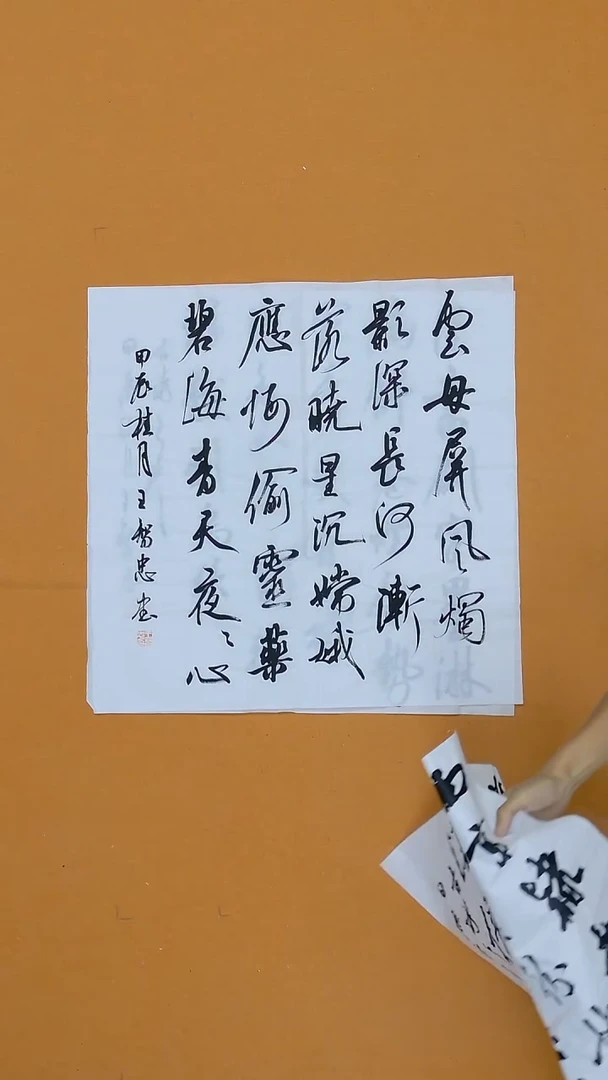 雲母屏風燭
影深長河漸
落曉星沉嫦娥
應悔偷靈藥
碧海青天夜〻心
甲辰桂月王智忠書